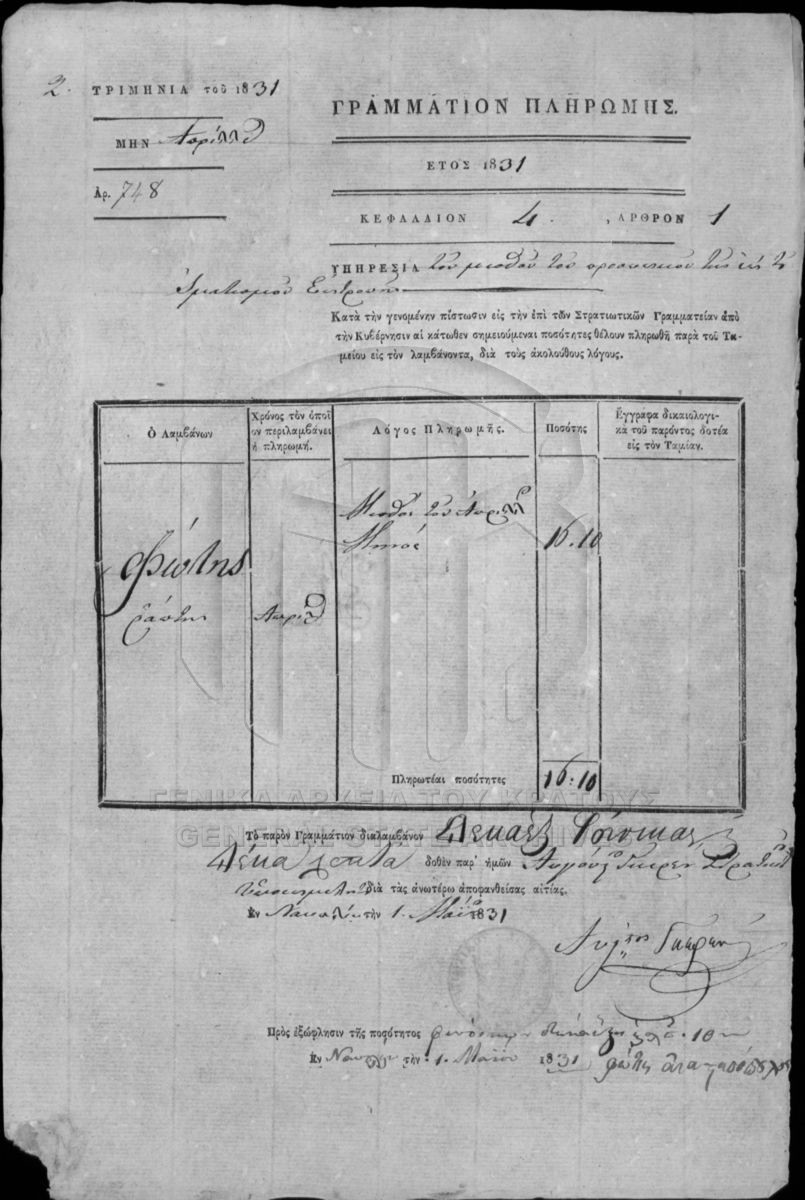 2. ΤΡΙΜΗΝΙΑ τοῦ 1831
ΜΗΝ Ἀπρίλλ
Ἀρ. 748
ΓΡΑΜΜΑΤΙΟΝ ΠΛΗΡΩΜΗΣ.
ΕΤΟΣ 1831
ΚΕΦΑΛΑΙΟΝ 4. , ΑΡΘΡΟΝ 1
ΥΠΗΡΕΣΙΑ τοῦ μισθοῦ τοῦ προσωπικοῦ τῆς
ἱματισμοῦ Ἐπιτροπῆς
Κατὰ τὴν γενομένην πίστωσιν εἰς τὴν ἐπὶ τῶν Στρατιωτικῶν Γραμματείαν ἀπὸ
τὴν Κυβέρνησιν αἱ κάτωθεν σημειούμεναι ποσότητες θέλουν πληρωθῆ παρὰ τοῦ Τα-
μείου εἰς τὸν λαμβάνοντα, διὰ τοὺς ἀκολούθους λόγους.
Ὁ Λαμβάνων
Χρόνος τὸν ὁποῖ
ον περιλαμβάνει
ἡ πληρωμή.
Λόγος Πληρωμῆς.
Ποσότης
Ἔγγραφα δικαιολογι-
κὰ τοῦ παρόντος δοτέα
εἰς τὸν Ταμίαν.
Μισθὸς τοῦ Ἀπριλλ
Μηνός 16.10
Φώτης
ῥάπτης Ἀπριλ
Πληρωτέαι ποσότητες 16:10
ΓΕΝΙΚΑ ΑΡΧΕΙΑ ΤΟΥ ΚΡΑΤΟΥΣ
Τὸ παρὸν Γραμμάτιον διαλαμβάνον Δεκαέξ Φοίνικας
Δέκα λεπτά δοθὲν παρ' ἡμῶν
διὰ τὰς ἀνωτέρω ἀποφανθείσας αἰτίας.
Ἐν Ναυπλίῳ τὴν 1. Μαΐου 1831
Πρὸς ἐξώφλησιν τῆς ποσότητος 10
Ἐν Ναυπλίῳ τὴν 1. Μαΐου 1831 φώτης